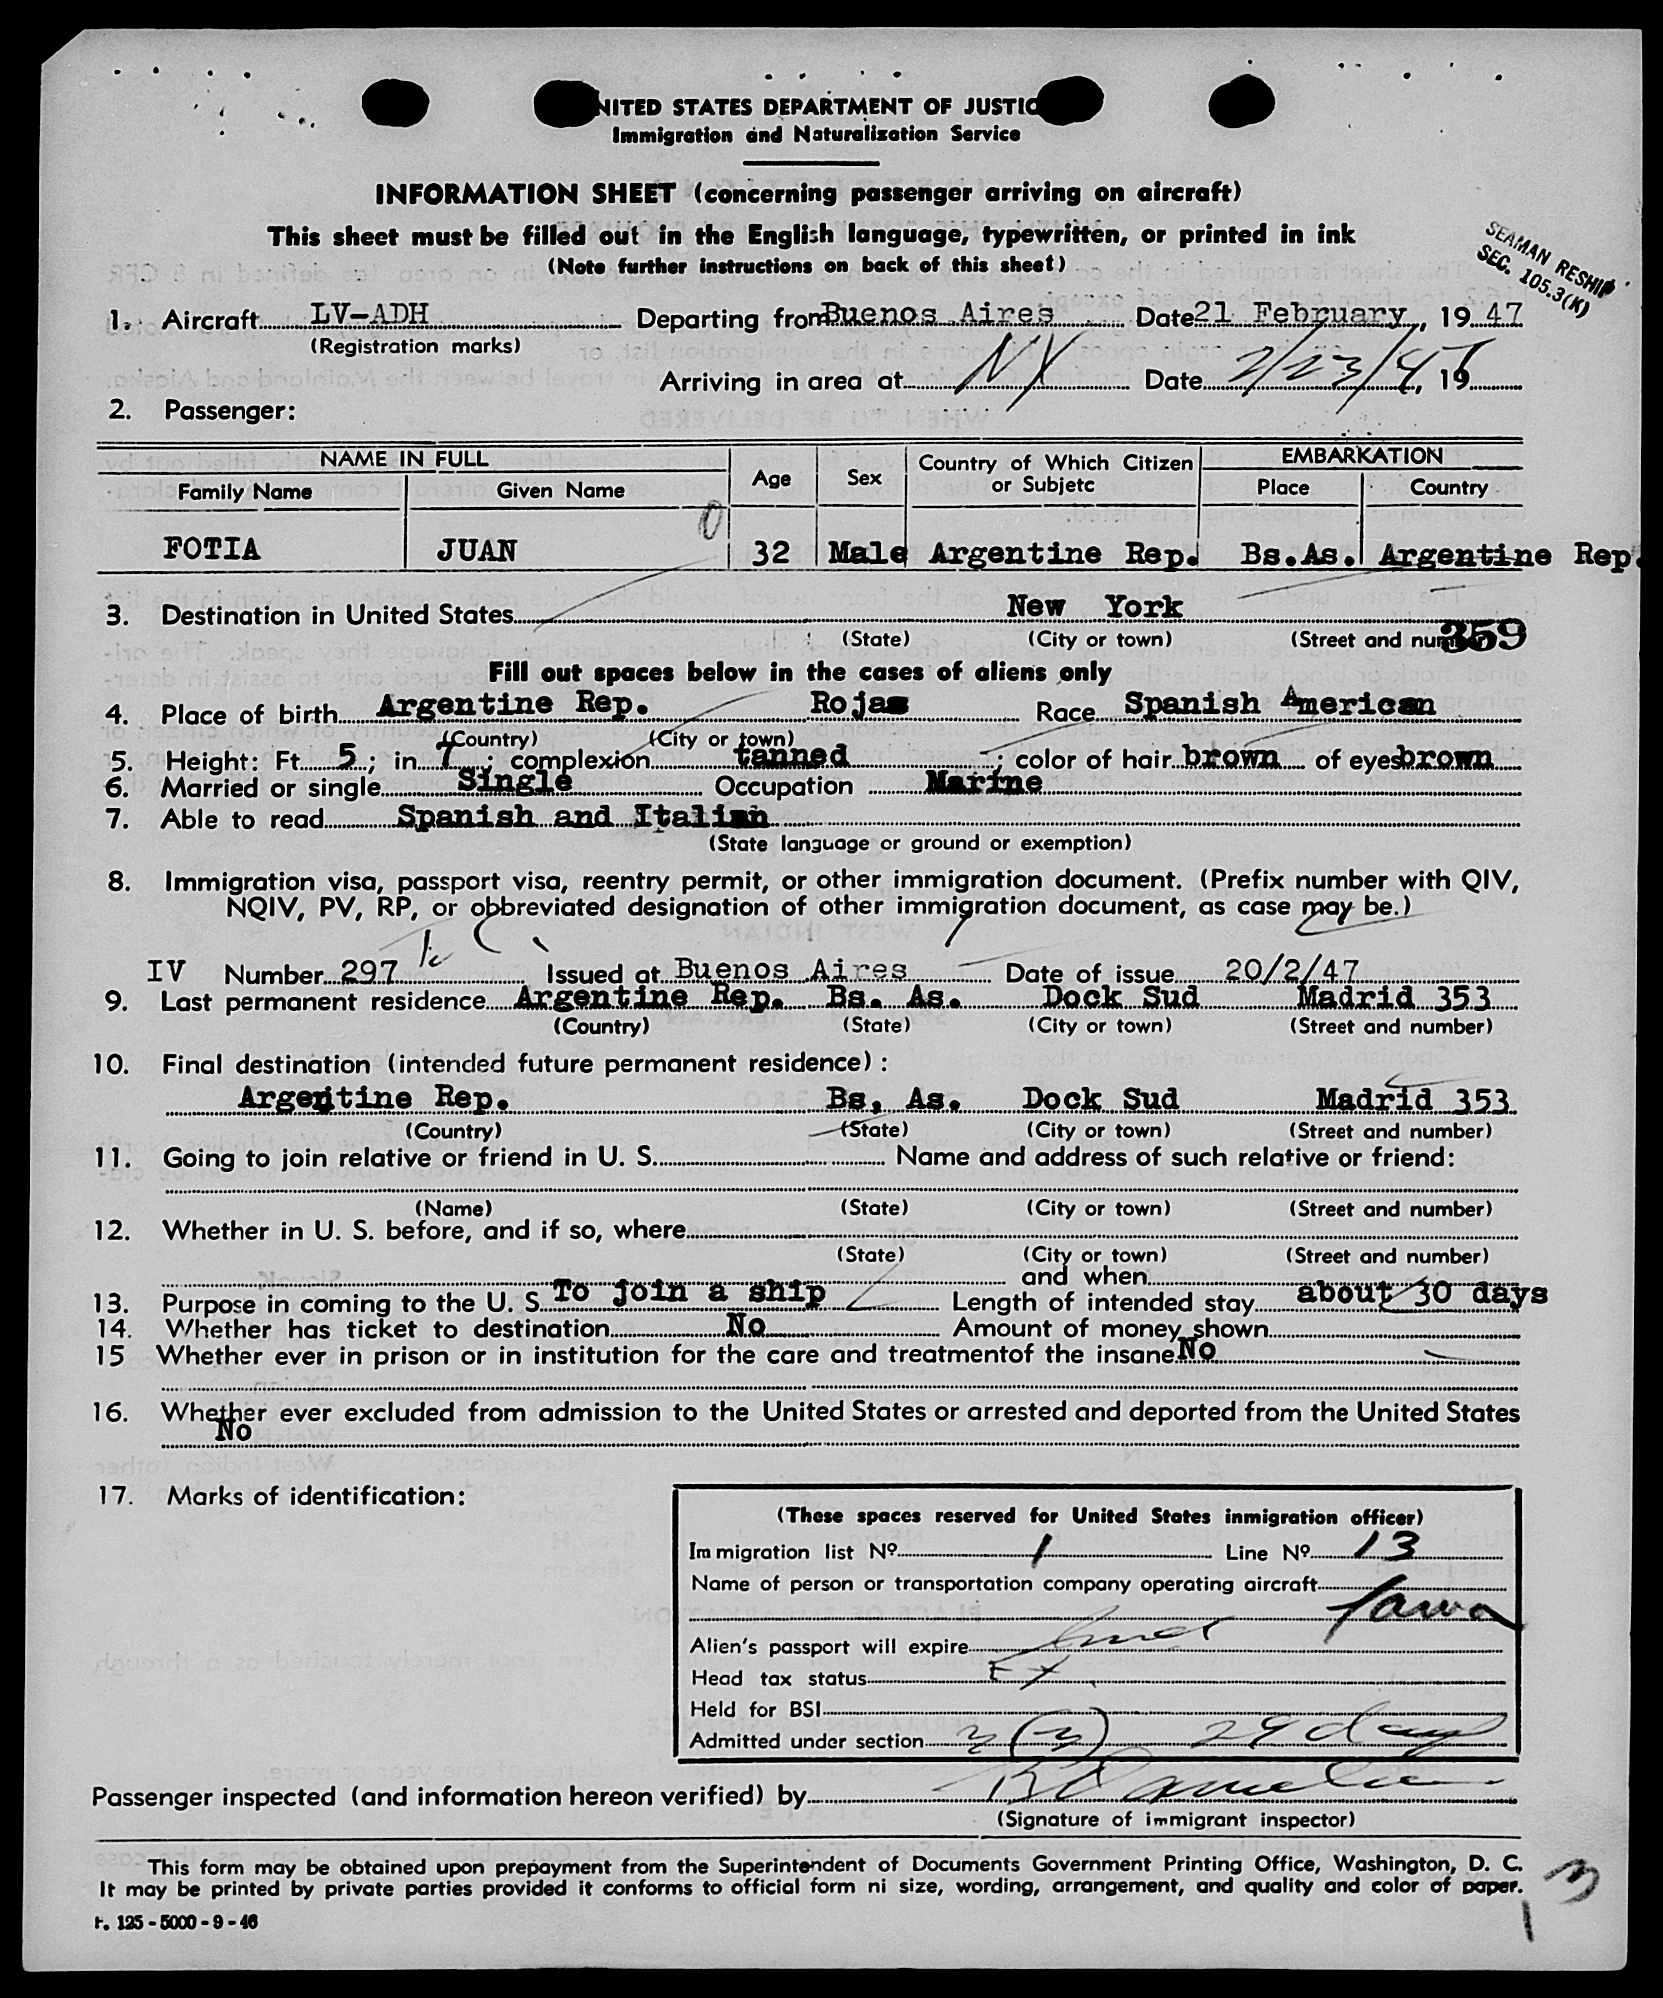 UNITED STATES DEPARTMENT OF JUSTIC
Immigration and Naturalization Service
INFORMATION SHEET (concerning passenger arriving on aircraft)
This sheet must be filled out in the English language, typewritten, or printed in ink
(Note further instructions on back of this sheet)
SEAMAN RESHIP
SEC. 105.3(K)
1. Aircraft LV-ADH Departing from Buenos Aires Date 21 February, 19 47
(Registration marks)
Arriving in area at NY Date 2/23/47, 19
2. Passenger:
NAME IN FULL Age Sex Country of Which Citizen or Subjetc EMBARKATION
Family Name Given Name Place Country
FOTIA JUAN 32 Male Argentine Rep. Bs.As. Argentine Rep.
3. Destination in United States New York
(State) (City or town) (Street and number)
359
Fill out spaces below in the cases of aliens only
4. Place of birth Argentine Rep. Rojas Race Spanish American
(Country) (City or town)
5. Height: Ft. 5; in. 7; complexion tanned; color of hair brown of eyes brown
6. Married or single Single Occupation Marine
7. Able to read Spanish and Italian
(State language or ground or exemption)
8. Immigration visa, passport visa, reentry permit, or other immigration document. (Prefix number with QIV,
NQIV, PV, RP, or obbreviated designation of other immigration document, as case may be.)
IV Number 297 Issued at Buenos Aires Date of issue 20/2/47
9. Last permanent residence Argentine Rep. Bs. As. Dock Sud Madrid 353
(Country) (State) (City or town) (Street and number)
10. Final destination (intended future permanent residence) :
Argentine Rep. Bs, As. Dock Sud Madrid 353
(Country) (State) (City or town) (Street and number)
11. Going to join relative or friend in U. S. Name and address of such relative or friend:
(Name) (State) (City or town) (Street and number)
12. Whether in U. S. before, and if so, where
(State) (City or town) (Street and number)
and when
13. Purpose in coming to the U. S. To join a ship Length of intended stay about 30 days
14. Whether has ticket to destination No Amount of money shown
15 Whether ever in prison or in institution for the care and treatmentof the insane No
16. Whether ever excluded from admission to the United States or arrested and deported from the United States
No
17. Marks of identification:
(These spaces reserved for United States inmigration officer)
Immigration list Nº 1 Line Nº 13
Name of person or transportation company operating aircraft
Fama
Alien's passport will expire
Head tax status Ex
Held for BSI
Admitted under section 3(3) 29 days
Passenger inspected (and information hereon verified) by
(Signature of immigrant inspector)
This form may be obtained upon prepayment from the Superintendent of Documents Government Printing Office, Washington, D. C.
It may be printed by private parties provided it conforms to official form ni size, wording, arrangement, and quality and color of paper.
F. 125 - 5000 - 9 - 46
13